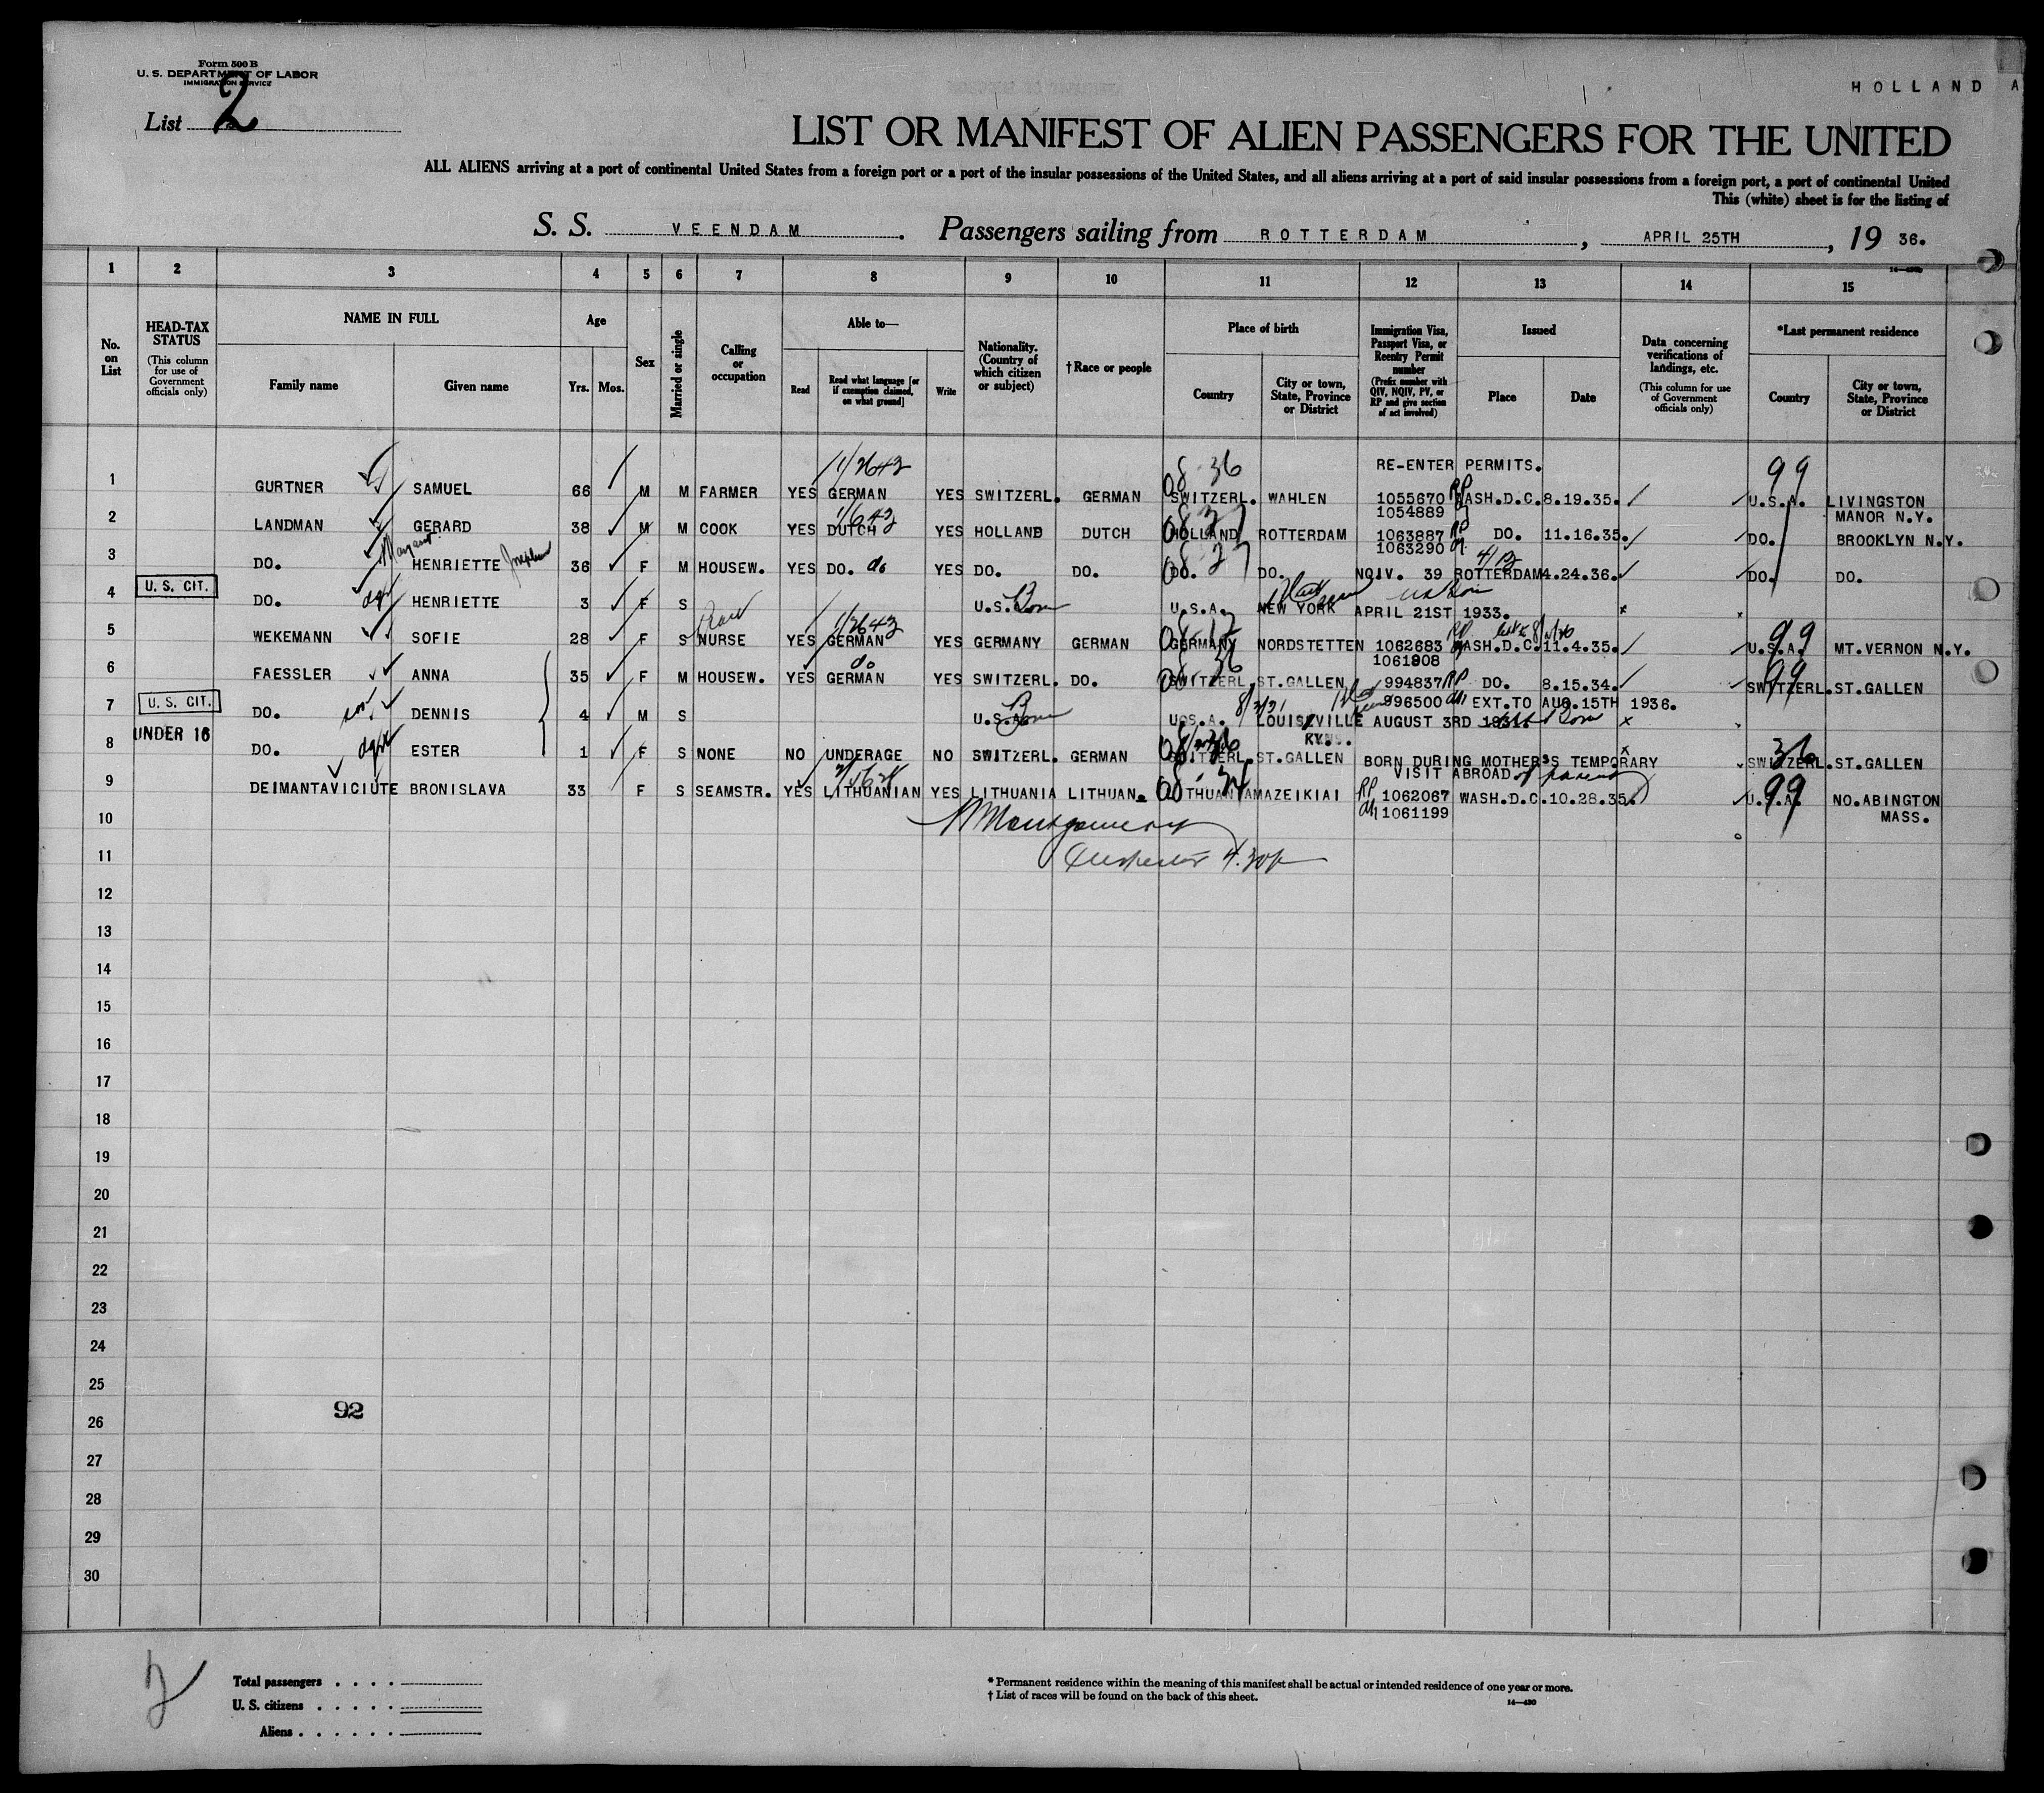 Form 500 B
U. S. DEPARTMENT OF LABOR
IMMIGRATION SERVICE
HOLLAND A
List 2
LIST OR MANIFEST OF ALIEN PASSENGERS FOR THE UNITED
ALL ALIENS arriving at a port of continental United States from a foreign port or a port of the insular possessions of the United States, and all aliens arriving at a port of said insular possessions from a foreign port, a port of continental United
This (white) sheet is for the listing of
S. S. VEENDAM. Passengers sailing from ROTTERDAM, APRIL 25TH, 19 36.
1 2 3 4 5 6 7 8 9 10 11 12 13 14 15
No. on List
HEAD-TAX STATUS
(This column for use of Government officials only)
NAME IN FULL
Family name
Given name
Age
Yrs.
Mos.
Sex
Married or single
Calling or occupation
Able to—
Read
Read what language [or if exemption claimed, on what ground]
Write
Nationality. (Country of which citizen or subject)
† Race or people
Place of birth
Country
City or town, State, Province or District
Immigration Visa, Passport Visa, or Reentry Permit number
(Prefix number with QIV, NQIV, PV, or RP and give section of act involved)
Issued
Place
Date
Data concerning verifications of landings, etc.
(This column for use of Government officials only)
*Last permanent residence
Country
City or town, State, Province or District
RE-ENTER PERMITS.
1 GURTNER SAMUEL 66 M M FARMER YES GERMAN YES SWITZERL. GERMAN SWITZERL. WAHLEN 1055670 RP WASH.D.C. 8.19.35. U.S.A. LIVINGSTON
1054889 MANOR N.Y.
2 LANDMAN GERARD 38 M M COOK YES DUTCH YES HOLLAND DUTCH HOLLAND ROTTERDAM 1063887 RP DO. 11.16.35. DO. BROOKLYN N.Y.
1063290
3 DO. Margaret HENRIETTE 36 F M HOUSEW. YES DO. do YES DO. DO. DO. DO. NQIV. 39 ROTTERDAM 4.24.36. DO. DO.
U. S. CIT.
4 DO. HENRIETTE 3 F S U.S. Born U.S.A. NEW YORK APRIL 21ST 1933.
5 WEKEMANN SOFIE 28 F S NURSE YES GERMAN YES GERMANY GERMAN GERMANY NORDSTETTEN 1062683 RP WASH.D.C. 11.4.35. U.S.A. MT.VERNON N.Y.
1061908
6 FAESSLER ANNA 35 F M HOUSEW. YES GERMAN do YES SWITZERL. DO. SWITZERL. ST.GALLEN 994837 RP DO. 8.15.34. SWITZERL. ST.GALLEN
996500 EXT.TO AUG.15TH 1936.
U. S. CIT.
7 DO. son DENNIS 4 M S U.S. Born U.S.A. LOUISVILLE AUGUST 3RD 1931.
KY.
UNDER 16
8 DO. ESTER 1 F S NONE NO UNDERAGE NO SWITZERL. GERMAN SWITZERL. ST.GALLEN BORN DURING MOTHER'S TEMPORARY SWITZERL. ST.GALLEN
VISIT ABROAD of parents
9 DEIMANTAVICIUTE BRONISLAVA 33 F S SEAMSTR. YES LITHUANIAN YES LITHUANIA LITHUAN. LITHUANIA MAZEIKIAI RP 1062067 WASH.D.C. 10.28.35. U.S.A. NO.ABINGTON
1061199 MASS.
10
Montgomery
11
4.30p
12
13
14
15
16
17
18
19
20
21
22
23
24
25
92
26
27
28
29
30
Total passengers
U. S. citizens
Aliens
* Permanent residence within the meaning of this manifest shall be actual or intended residence of one year or more.
† List of races will be found on the back of this sheet.
14—430